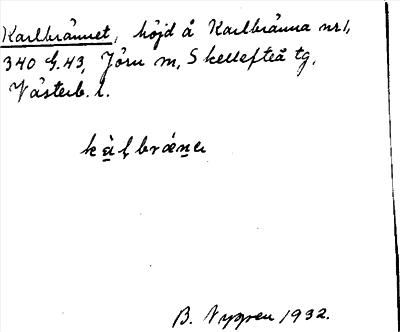 Karlbrännet, höjd å Karlbränna nr 1,
340 G. 43, Jörn m, Skellefteå tg,
Västerb. l.
kàḷbrǽna
B. Nygren 1932.